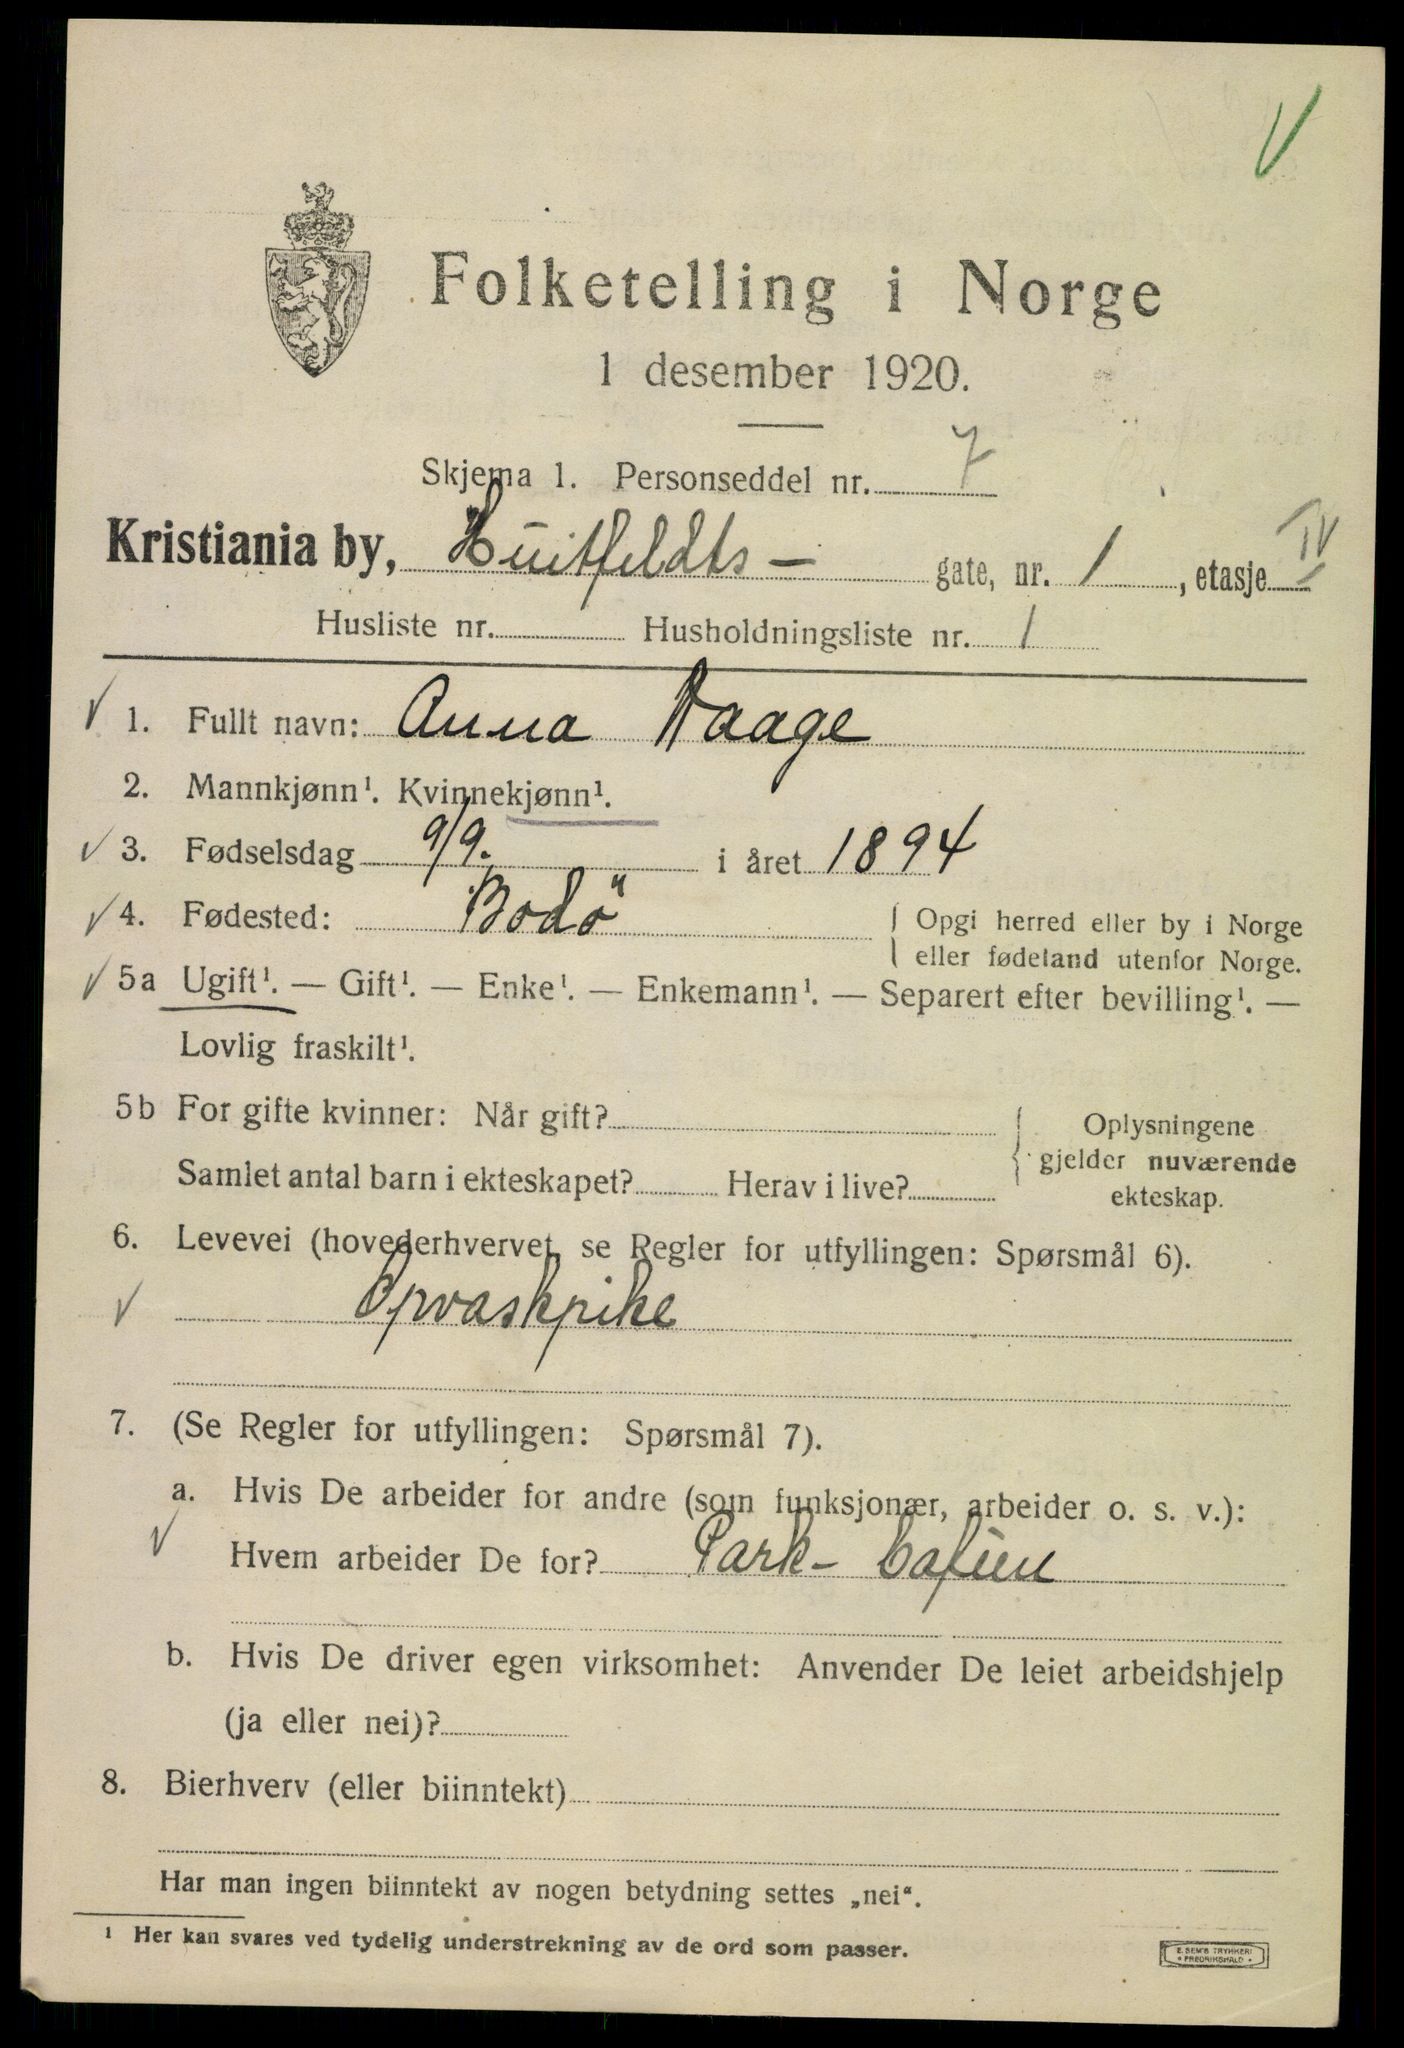 Folketelling i Norge
1 desember 1920.
Skjema 1. Personseddel nr. 7
Kristiania by, Huitfeldts- gate, nr. 1, etasje IV
Husliste nr. Husholdningsliste nr. 1
1. Fullt navn: Anna Raage
2. Mannkjønn¹. Kvinnekjønn¹.
3. Fødselsdag 9/9. i året 1894
4. Fødested: Bodö { Opgi herred eller by i Norge
eller fødeland utenfor Norge.
5a Ugift¹. — Gift¹. — Enke¹. — Enkemann¹. — Separert efter bevilling¹. —
Lovlig fraskilt¹.
5b For gifte kvinner: Når gift? { Oplysningene
gjelder nuværende
Samlet antal barn i ekteskapet? Herav i live? ekteskap.
6. Levevei (hovederhvervet, se Regler for utfyllingen: Spørsmål 6).
Opvaskpike
7. (Se Regler for utfyllingen: Spørsmål 7).
a. Hvis De arbeider for andre (som funksjonær, arbeider o. s. v.):
Hvem arbeider De for? Park-Cafeen
b. Hvis De driver egen virksomhet: Anvender De leiet arbeidshjelp
(ja eller nei)?
8. Bierhverv (eller biinntekt)
Har man ingen biinntekt av nogen betydning settes „nei“.
¹ Her kan svares ved tydelig understrekning av de ord som passer.
E. SEM'S TRYKKERI
• FREDRIKSHALD •